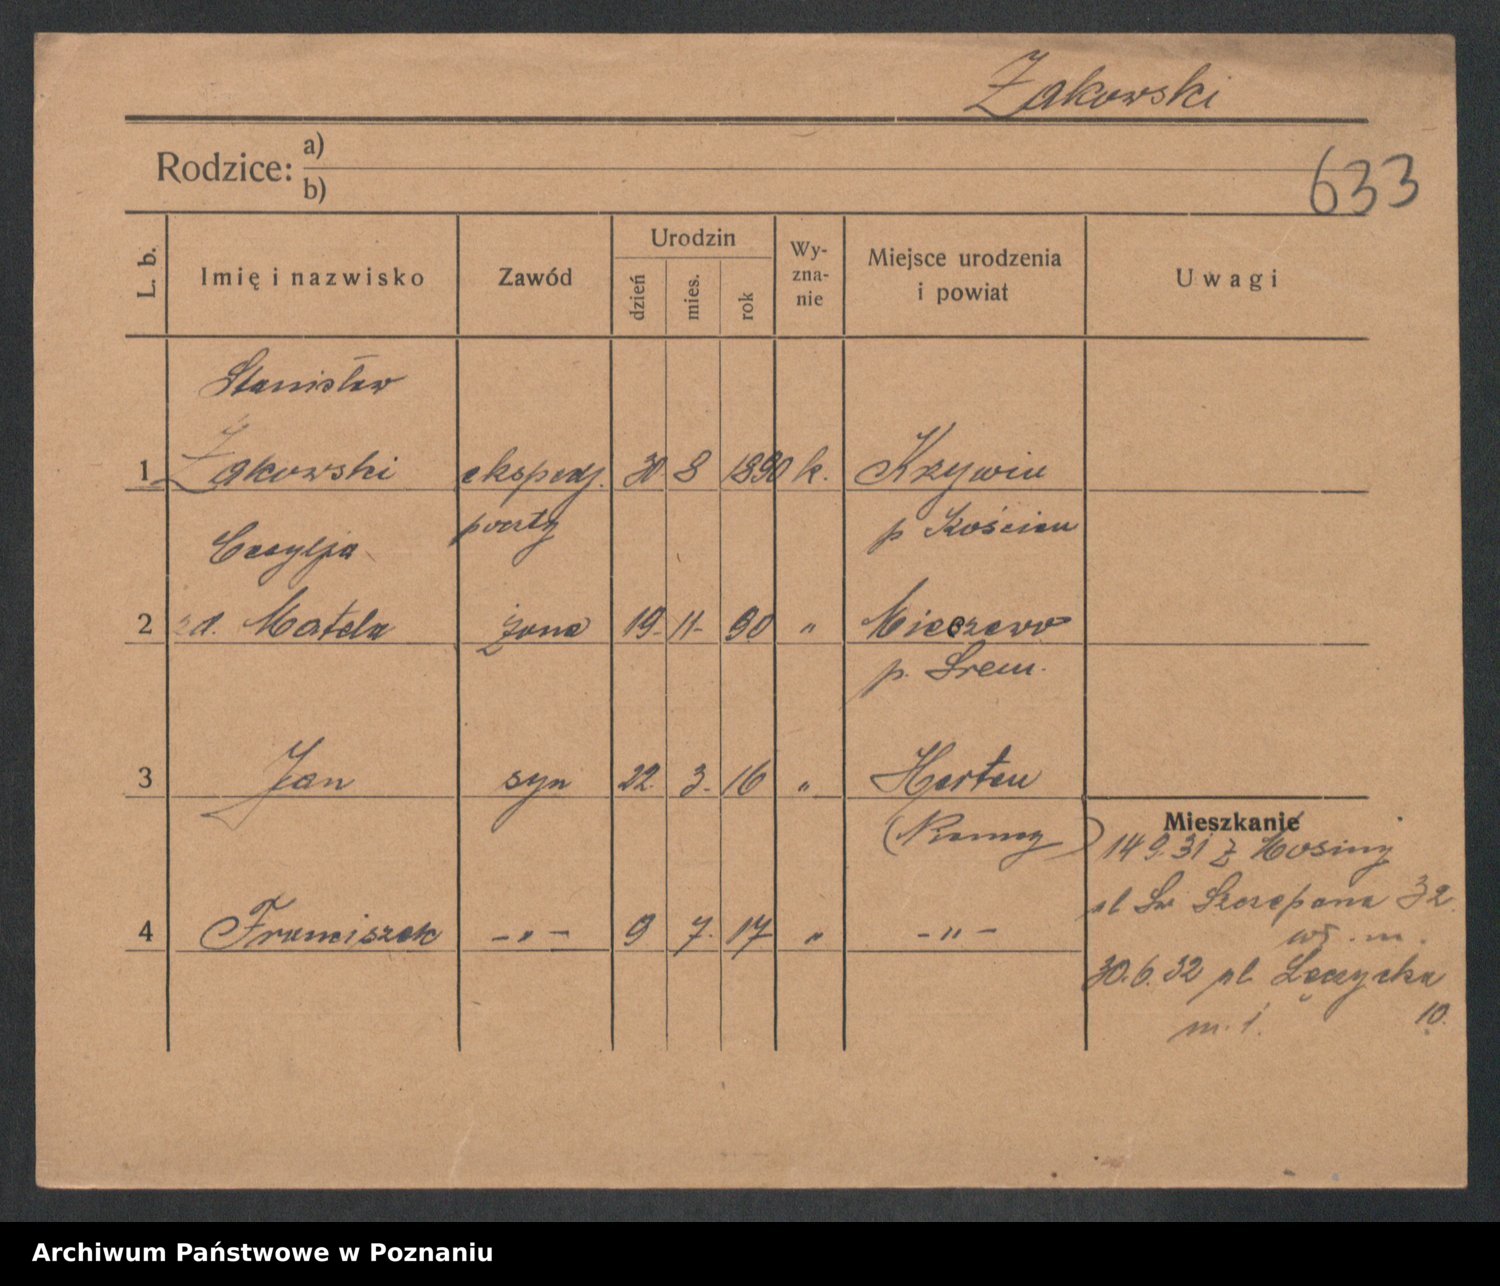 Żakowski
Rodzice: a)
b)
633
L. b.
Imię i nazwisko
Zawód
Urodzin
dzień
mies.
rok
Wy-
zna-
nie
Miejsce urodzenia
i powiat
Uwagi
Stanisław
1 Żakowski ekspedj. 30 8 1890 k. Krzywiń
poczty p Kościan
Cecylja
2 zd. Matela żona 19. 11. 90 " Mieczewo
p. Śrem.
3 Jan syn 22. 3. 16 " Herten
(Niemcy)
4 Franciszek -„- 9 7. 17 " -"-
Mieszkanie
14 9. 31 z Mosiny
ul Św Szczepana 32.
wł. m.
30. 6. 32 ul. Łęczycka
m. 1. 10.
Archiwum Państwowe w Poznaniu